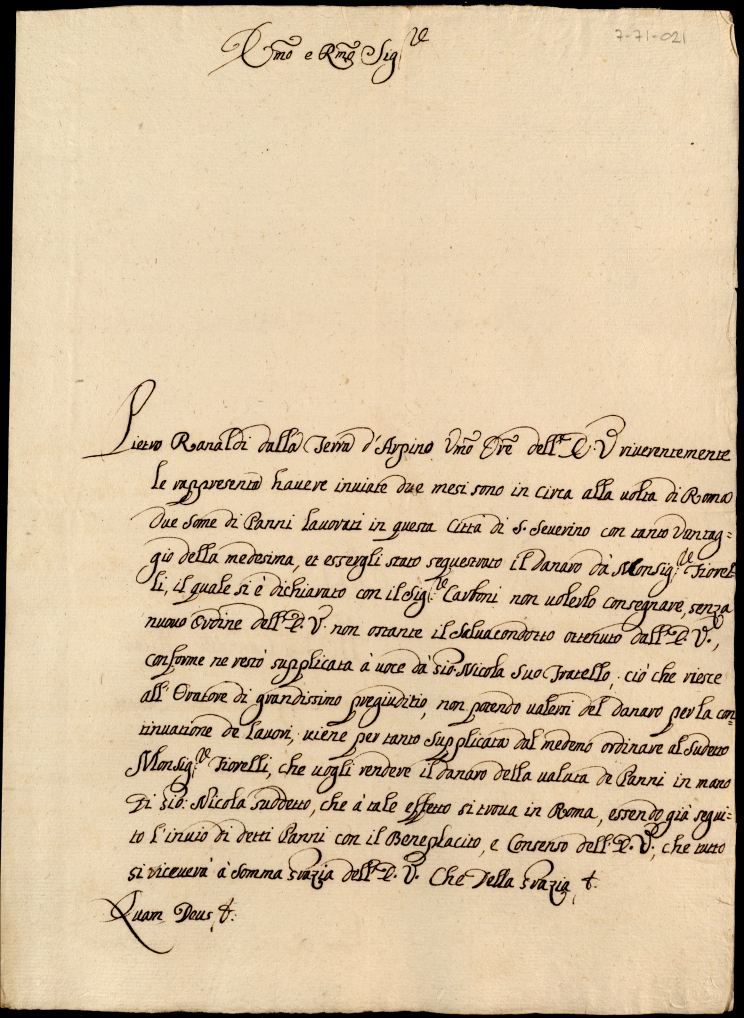 Em̃o e Rm̃o Sig.re
7-71-021
Pietro Ranaldi dalla Terra d'Arpino Um̃o Ore dell'E. V. riverentemente
le rappresenta havere inviate due mesi sono in circa alla volta di Roma
due some di Panni lavorati in questa Città di S. Severino con tanto Vantag=
gio della medesima, et essergli stato sequestrato il danaro dà Monsig.re Fiorel-
li, il quale si è dichiarato con il Sig.re Carboni non volerlo consegnare, senza
nuovo Ordine dell'E. V. non ostante il Salvacondotto ottenuto dall'E. V.,
conforme ne restò supplicata à voce dà Gio: Nicola Suo Fratello, ciò che riesce
all'Oratore di grandissimo pregiuditio, non potendo valersi del danaro per la con-
tinuatione de lavori, viene per tanto Supplicata dal medemo ordinare al Sudetto
Monsig.re Fiorelli, che vogli rendere il danaro della valuta de Panni in mano
di Gio: Nicola suddetto, che à tale effetto si trova in Roma, essendo già segui=
to l'invio di detti Panni con il Beneplacito, e Consenso dell'E. V., che tutto
si riceverà à somma grazia dell'E. V. Che Della Grazia &.
Quam Deus &.